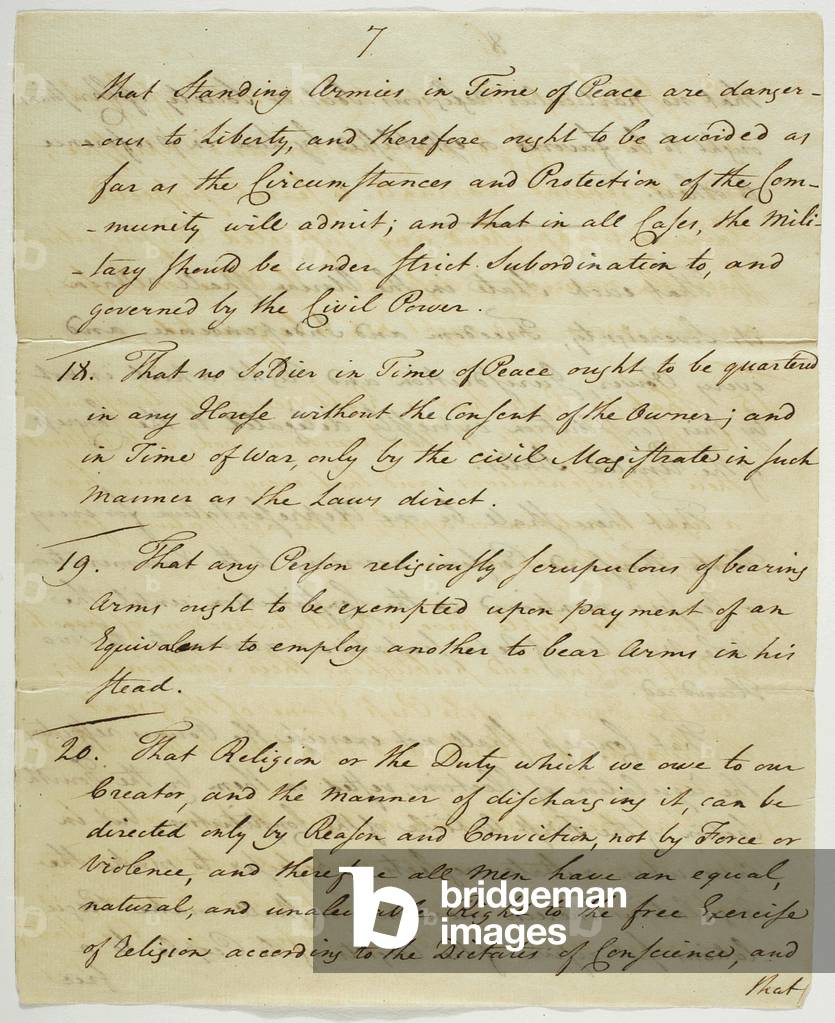 7
that Standing Armies in Time of Peace are danger-
-ous to Liberty, and therefore ought to be avoided as
far as the Circumstances and Protection of the Com-
-munity will admit; and that in all Cases, the Mili-
-tary should be under strict Subordination to, and
governed by the Civil Power.
18. That no Soldier in Time of Peace ought to be quartered
in any House without the Consent of the Owner; and
in Time of War, only by the civil Magistrate in such
Manner as the Laws direct.
19. That any Person religiously scrupulous of bearing
Arms ought to be exempted upon payment of an
Equivalent to employ another to bear Arms in his
stead.
20. That Religion or the Duty which we owe to our
Creator, and the manner of discharging it, can be
directed only by Reason and Conviction, not by Force or
Violence, and therefore all Men have an equal,
natural, and unalienable Right to the free Exercise
of Religion according to the Dictates of Conscience, and
that
b bridgeman
images